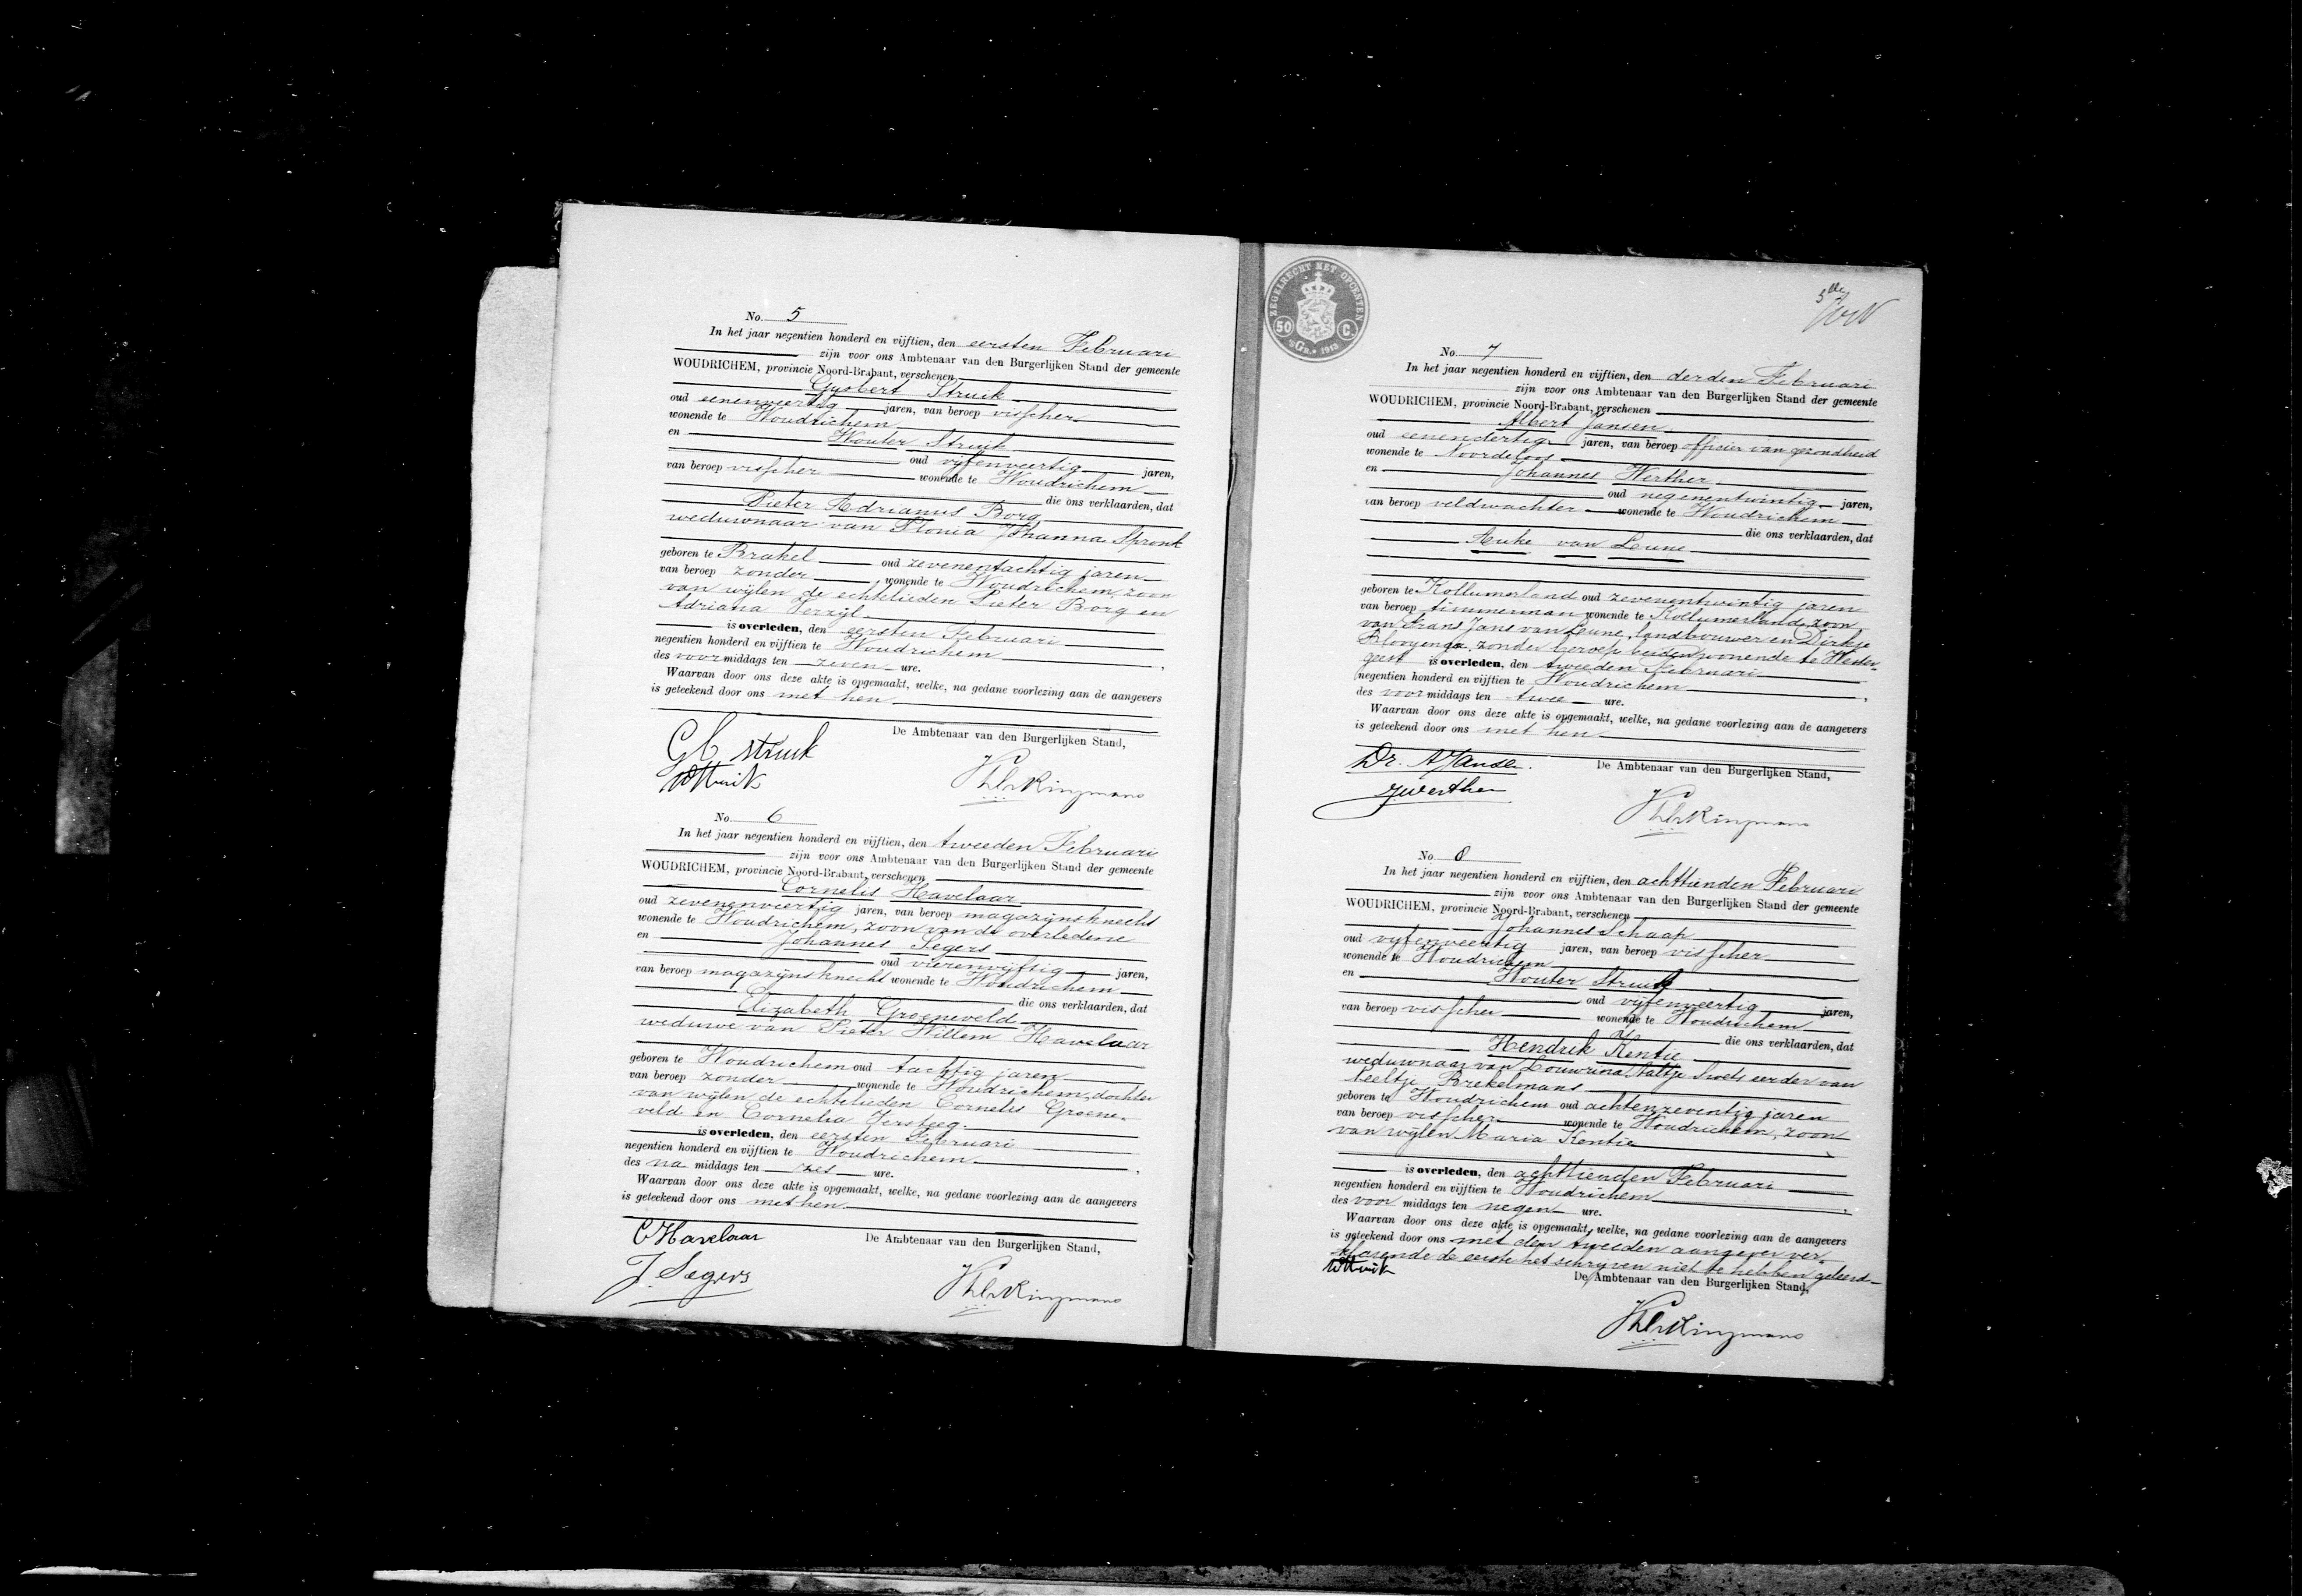 No. 5
In het jaar negentien honderd en vijftien, den eersten Februari
zijn voor ons Ambtenaar van den Burgerlijken Stand der gemeente
WOUDRICHEM, provincie Noord-Brabant, verschenen
Gysbert Struik
oud eenenveertig jaren, van beroep visscher
wonende te Woudrichem
en Wouter Struik
oud vijfenveertig jaren,
van beroep visscher wonende te Woudrichem
die ons verklaarden, dat
Pieter Adrianus Borg
weduwnaar van Plonia Johanna Spronk
geboren te Brakel oud zevenentachtig jaren
van beroep zonder wonende te Woudrichem, zoon
van wijlen de echtelieden Pieter Borg en
Adriana Verzijl
is overleden, den eersten Februari
negentien honderd en vijftien te Woudrichem,
des voormiddags ten zeven ure.
Waarvan door ons deze akte is opgemaakt, welke, na gedane voorlezing aan de aangevers
is geteekend door ons met hen.
De Ambtenaar van den Burgerlijken Stand,
G Struik
W Struik
No. 6
In het jaar negentien honderd en vijftien, den tweeden Februari
zijn voor ons Ambtenaar van den Burgerlijken Stand der gemeente
WOUDRICHEM, provincie Noord-Brabant, verschenen
Cornelis Havelaar
oud zevenenveertig jaren, van beroep magazijnsknecht
wonende te Woudrichem, zoon van de overledene
en Johannes Segers
oud vierenvijftig jaren,
van beroep magazijnsknecht wonende te Woudrichem
die ons verklaarden, dat
Elizabeth Groeneveld
weduwe van Pieter Willem Havelaar
geboren te Woudrichem oud tachtig jaren
van beroep zonder wonende te Woudrichem, dochter
van wijlen de echtelieden Cornelis Groene-
veld en Cornelia Versteeg.
is overleden, den eersten Februari
negentien honderd en vijftien te Woudrichem,
des na middags ten zes ure.
Waarvan door ons deze akte is opgemaakt, welke, na gedane voorlezing aan de aangevers
is geteekend door ons met hen.
De Ambtenaar van den Burgerlijken Stand,
C Havelaar
J. Segers
ZEGELRECHT MET OPCENTEN
50 C.
'sGR. 1915
No. 7
In het jaar negentien honderd en vijftien, den derden Februari
zijn voor ons Ambtenaar van den Burgerlijken Stand der gemeente
WOUDRICHEM, provincie Noord-Brabant, verschenen
Albert Jansen
oud eenendertig jaren, van beroep officier van gezondheid
wonende te Noordeloos
en Johannes Werther
oud negenentwintig jaren,
van beroep veldwachter wonende te Woudrichem
die ons verklaarden, dat
Auke van Leune
geboren te Kollumerland oud zevenentwintig jaren
van beroep timmerman wonende te Kollumerland, zoon
van Frans Jans van Leune, landbouwer en Dirkje
Klooyenga, zonder beroep beiden wonende te Wester-
geest is overleden, den tweeden Februari
negentien honderd en vijftien te Woudrichem,
des voormiddags ten twee ure.
Waarvan door ons deze akte is opgemaakt, welke, na gedane voorlezing aan de aangevers
is geteekend door ons met hen
De Ambtenaar van den Burgerlijken Stand,
Dr. A Jansen.
J Werther
No 8
In het jaar negentien honderd en vijftien, den achttienden Februari
zijn voor ons Ambtenaar van den Burgerlijken Stand der gemeente
WOUDRICHEM, provincie Noord-Brabant, verschenen
Johannes Schaap
oud vijfenveertig jaren, van beroep visscher
wonende te Woudrichem
en Wouter Struik
oud vijfenveertig jaren,
van beroep visscher wonende te Woudrichem
die ons verklaarden, dat
Hendrik Kentie
weduwnaar van Louwrina Aaltje Smets eerder van
Geeltje Brekelmans
geboren te Woudrichem oud achtenzeventig jaren
van beroep visscher wonende te Woudrichem, zoon
van wijlen Maria Kentie
is overleden, den achttienden Februari
negentien honderd en vijftien te Woudrichem,
des voor middags ten negen ure.
Waarvan door ons deze akte is opgemaakt, welke, na gedane voorlezing aan de aangevers
is geteekend door ons met den tweeden aangever ver-
klarende de eerste het schrijven niet te hebben geleerd
W Struik
De Ambtenaar van den Burgerlijken Stand,